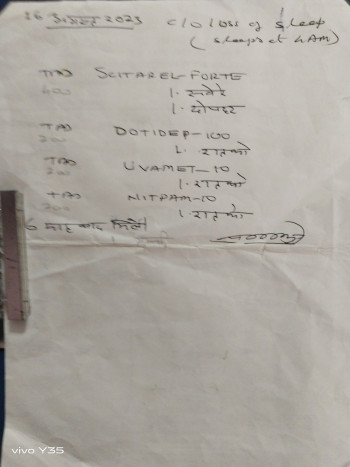 26 अगस्त 2023 c/o loss of sleep
( sleeps at 4 AM)
TAB SCITAREL-FORTE
400 1. सवेरे
1. दोपहर
TAB DOTIDEP-100
200 1. रात को
TAB UVAMET-10
200 1. रात को
TAB NITPAM-10
200 1. रात को
6 माह बाद मिलें।
vivo Y35